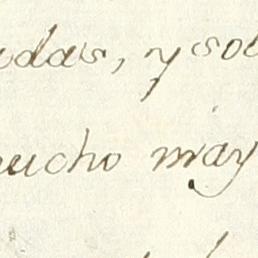 udas, y sol
mucho may